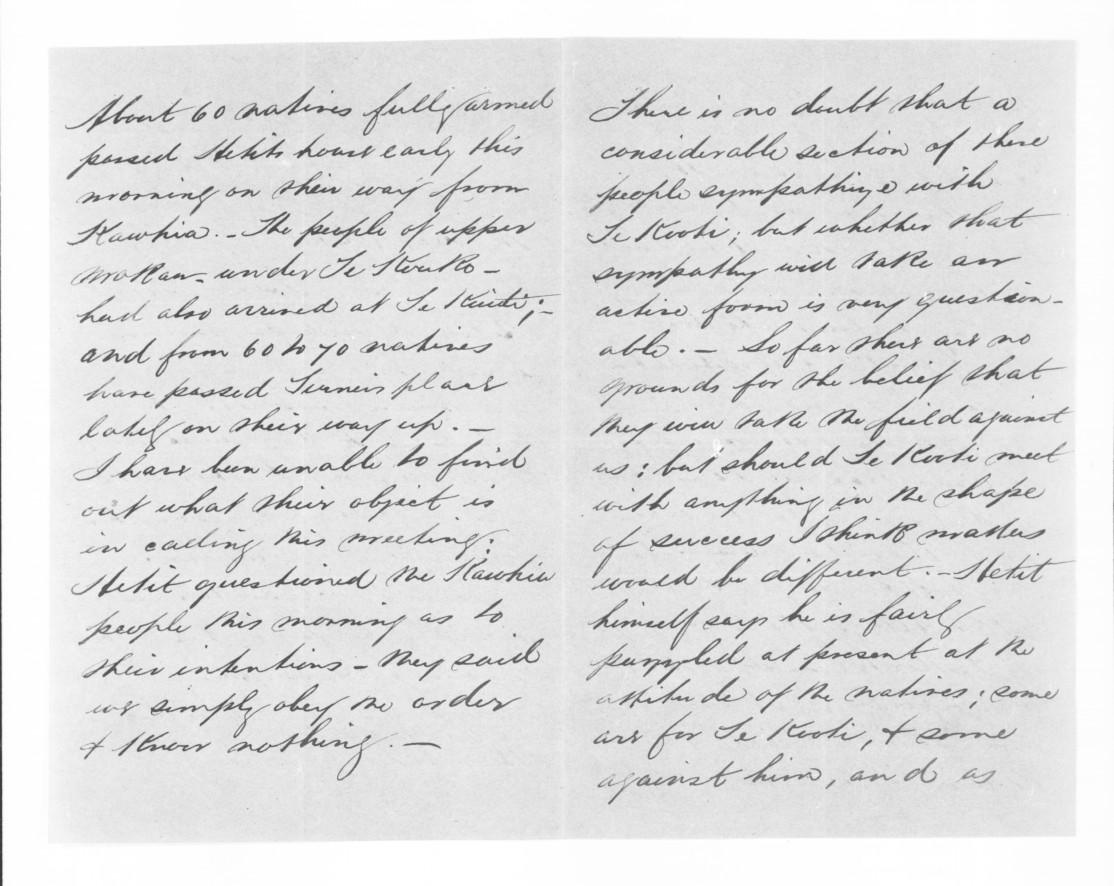 About 60 natives fully armed
passed Hetits house early this
morning on their way from
Kawhia. - The people of upper
Mokau - under Te Kouko -
had also arrived at Te Kuiti; -
and from 60 to 70 natives
have passed place
lately on their way up. -
I have been unable to find
out what their object is
in calling this meeting:
Hetit questioned the Kawhia
people this morning as to
their intentions - they said
we simply obey the order
& know nothing. -
There is no doubt that a
considerable section of these
people sympathize with
Te Kooti; but whether that
sympathy will take an
active form is very question-
able. - So far there are no
grounds for the belief that
they will take the field against
us: but should Te Kooti meet
with anything in the shape
of success I think matters
would be different. - Hetit
himself says he is fairly
puzzled at present at the
attitude of the natives; some
are for Te Kooti, & some
against him, and as